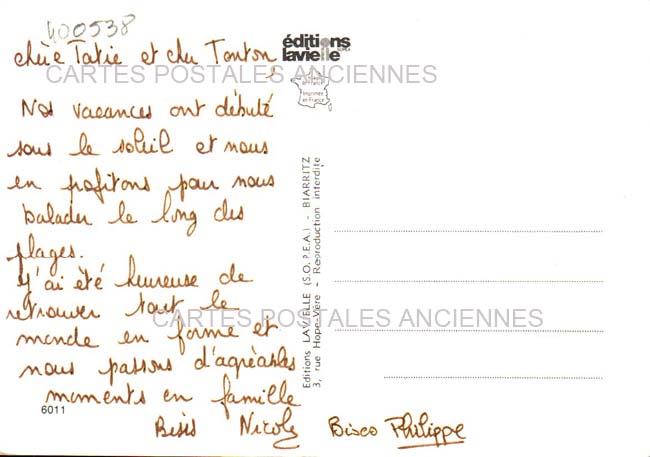 400538
chère Tatie et cher Tonton,
Nos vacances ont débuté
sous le soleil et nous
en profitons pour nous
balader le long des
plages.
J'ai été heureuse de
retrouver tout le
monde en forme et
nous passons d'agréables
moments en famille
Bisis Nicole Bisco Philippe
6011
éditions
lavielle
Imprimée
en France
Editions LAVIELLE (S.O.P.E.A.) - BIARRITZ
3, rue Hope-Vère - Reproduction interdite
CARTES POSTALES ANCIENNES
CARTES POSTALES ANCIENNES